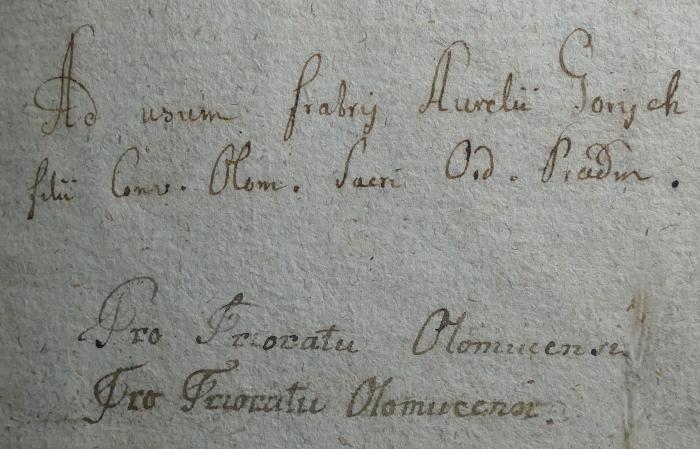 Ad usum fratris Aurelii Gorych
filii Conv. Olom. Sacri Ord. Prædm.
Pro Prioratu Olomucensi
Pro Prioratu Olomucensi.